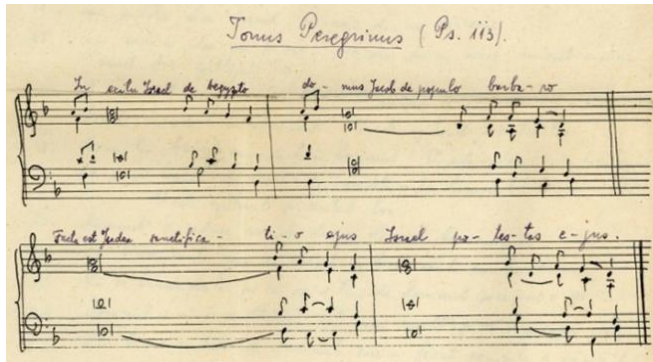 Tonus Peregrinus (Ps. 113).
In exitu Israel de Aegypto do- mus Jacob de populo barba-ro
Facta est Judea sanctifica- ti-o ejus Israel po-tes-tas e-jus.